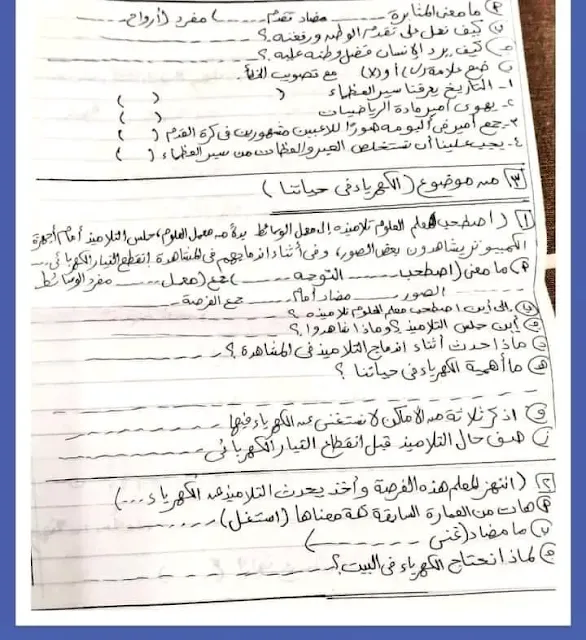 P ما معنى المثابرة ------ مضاد تقدم ------ ) مفرد (أرواح ---
ب) كيف نعمل على تقدم الوطن ورفعته ؟ ------
جـ) كيف يرد الإنسان فضل وطنه عليه ؟ ------
د) ضع علامة (√) أو (x) مع تصويب الخطأ.
١- التاريخ يعرفنا سير العظماء ( ) ( )
٢- يهوى أمير مادة الرياضيات ( ) ( )
٣- جمع أمير فى ألبومه صورًا للاعبين مشهورين فى كرة القدم ( )
٤- يجب علينا أن نستخلص العبر والعظات من سير العظماء ( )
٣ من موضوع (الكهرباء فى حياتنا)
١ (اصطحب معلم العلوم تلاميذه إلى معمل الوسائط بدلًا من معمل العلوم، جلس التلاميذ أمام أجهزة
الكمبيوتر يشاهدون بعض الصور، وفى أثناء اندماجهم فى المشاهدة انقطع التيار الكهربائى ---
P ما معنى (اصطحب ------ التوجه ------ ) جمع (معمل --- مفرد الوسائط
الصور ------ مضاد أمام ------ جمع الفرصة ---
ب) إلى أين اصطحب معلم العلوم تلاميذه ؟ ------
جـ) أين جلس التلاميذ ؟ وماذا شاهدوا ؟ ------
د) ماذا حدث أثناء اندماج التلاميذ فى المشاهدة ؟ ------
هـ) ما أهمية الكهرباء فى حياتنا ؟
و) اذكر ثلاثة من الأماكن لا نستغنى عن الكهرباء فيها ------
ز) صف حال التلاميذ قبل انقطاع التيار الكهربائى ------
٢ (انتهز المعلم هذه الفرصة وأخذ يحدث التلاميذ عن الكهرباء ...)
P هات من العبارة السابقة كلمة معناها (استغل) ------
ب) ما مضاد (غنى ------ )
جـ) لماذا نحتاج الكهرباء فى البيت ؟ ------